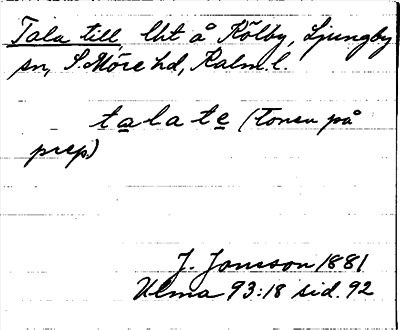 Tala till, lht å Kölby, Ljungby
sn, S. Möre hd, Kalm. l.
talate (Tonen på
prep)
J. Jonsson 1881
Ulma 93:18 sid. 92